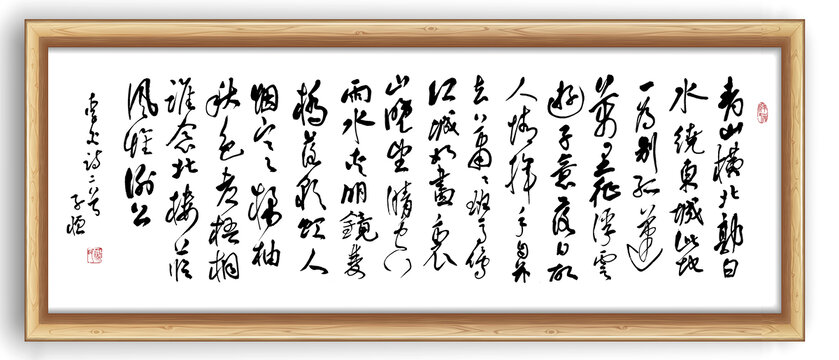 青山横北郭白
水绕东城此地
一为别孤蓬
万里征浮云
游子意落日故
人情挥手自兹
去萧萧班马鸣
江城如画里
山晓望晴空
两水夹明镜双
桥落彩虹人
烟寒橘柚
秋色老梧桐
谁念北楼上临
风怀谢公
李白诗二首